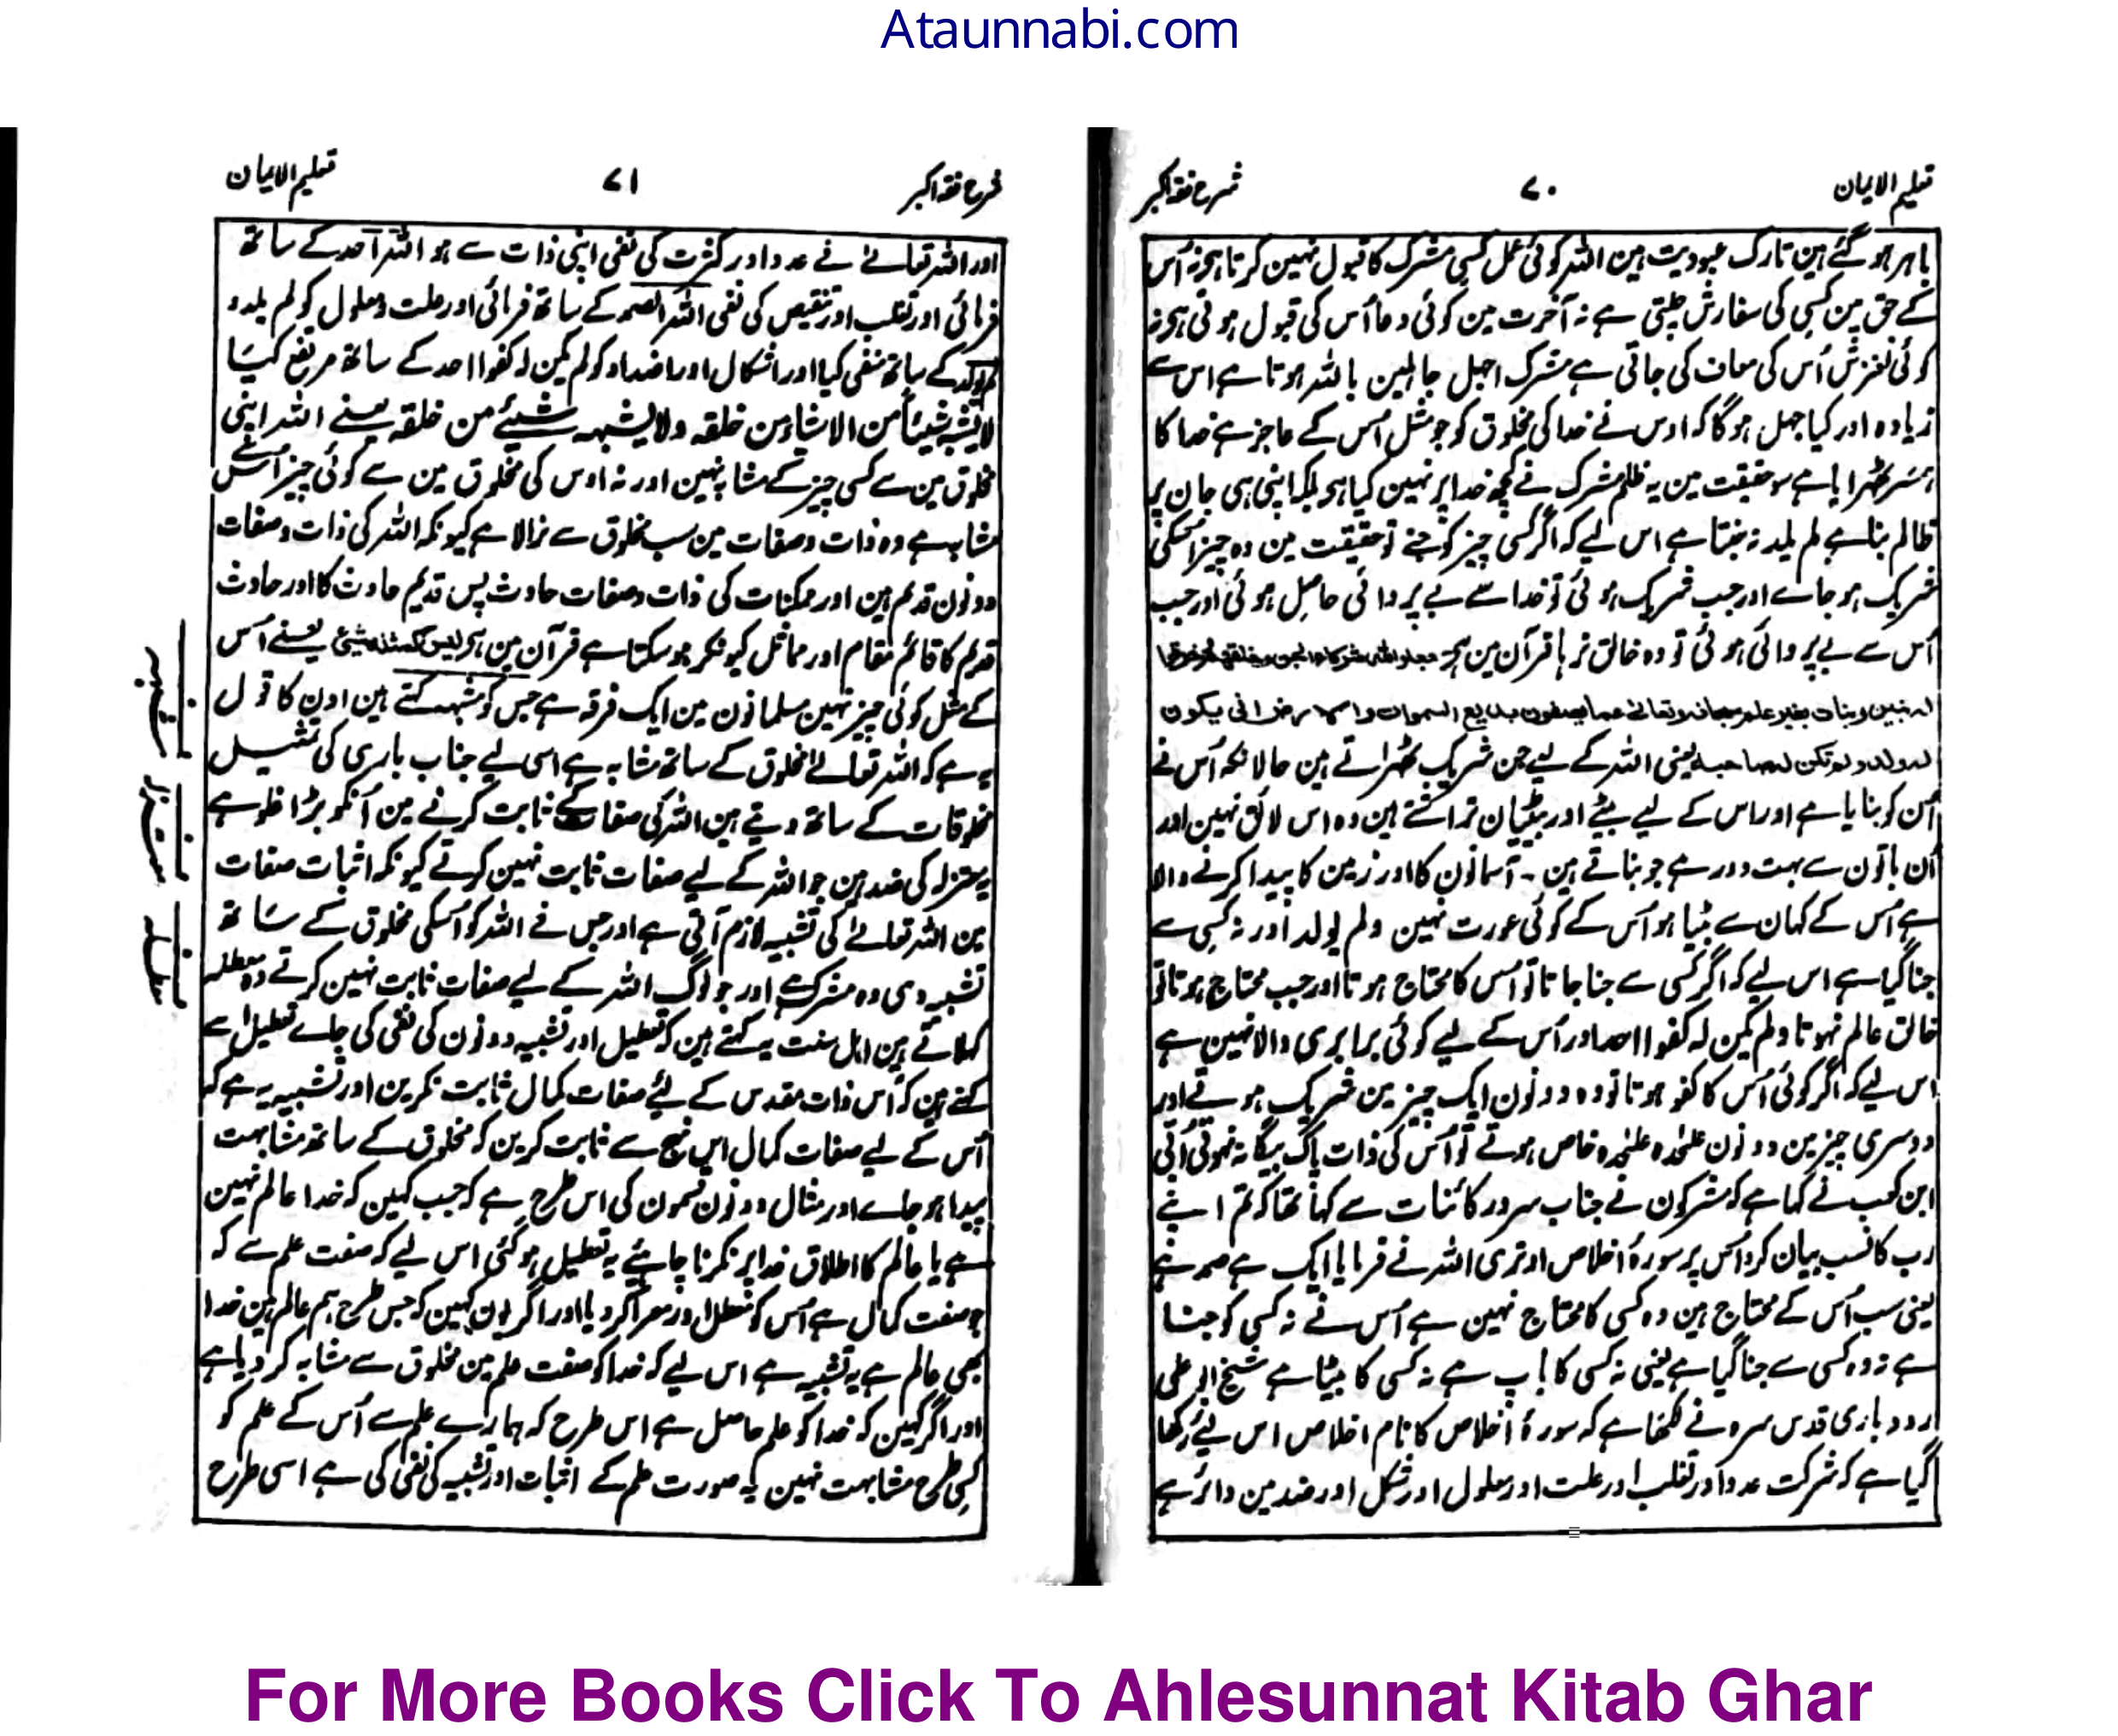 Ataunnabi.com
تعلیم الایمان
۷۰
شرح فقہ اکبر
باہر ہو گئے ہین تارک عبودیت ہین اللہ کوئی عمل کسی مشرک کا قبول نہین کرتا ہی نہ اُس
کے حق مین کسی کی سفارش چلتی ہے نہ آخرت مین کوئی دعا اُس کی قبول ہوتی ہی نہ
کوئی لغزش اُس کی معاف کی جاتی ہے مشرک اجہل جاہلین باللہ ہوتا ہے اس سے
زیادہ اور کیا جہل ہوگا کہ اوس نے خدا کی مخلوق کو جو مثل اُس کے عاجز ہے خدا کا
ہمسر ٹھہرایا ہے سو حقیقت مین یہ ظلم مشرک نے کچھ خدا پر نہین کیا ہی بلکہ اپنی ہی جان پر
ظالم بنا ہے لم یلد نہ جنتا ہے اس لیے کہ اگر کسی چیز کو جنے تو حقیقت مین وہ چیز اُسکی
شریک ہو جاے اور جب شریک ہوئی تو خدا سے بے پروائی حاصل ہوئی اور جب
اُس سے بے پروائی ہوئی تو وہ خالق نہ رہا قرآن مین ہی وجعلوا للہ شرکاء الجن وخلقھم وخرقوا
لہ بنین وبنات بغیر علم سبحانہ وتعالیٰ عما یصفون بدیع السموات والارض انی یکون
لہ ولد ولم تکن لہ صاحبہ یعنی اللہ کے لیے جن شریک ٹھہراتے ہین حالانکہ اُس نے
اُن کو بنایا ہے اور اس کے لیے بیٹے اور بیٹیان تراشتے ہین وہ اس لائق نہین اور
اُن باتون سے بہت دور ہے جو بناتے ہین ۔ آسمانون کا اور زمین کا پیدا کرنے والا
ہے اُس کے کہان سے بیٹا ہو اُس کے کوئی عورت نہین ولم یولد اور نہ کسی سے
جنا گیا ہے اس لیے کہ اگر کسی سے جنا جاتا تو اُس کا محتاج ہوتا اور جب محتاج ہوتا تو
خالق عالم نہوتا ولم یکن لہ کفوا احد اور اُس کے لیے کوئی برابری والا نہین ہے
اس لیے کہ اگر کوئی اُس کا کفو ہوتا تو وہ دونون ایک چیز مین شریک ہوتے اور
دوسری چیز مین دونون علٰحدہ علٰحدہ خاص ہوتے تو اُس کی ذات پاک یگانہ نہوتی اُبی
ابن کعب نے کہا ہے کہ مشرکون نے جناب سرور کائنات سے کہا تھا کہ تم اپنے
رب کا نسب بیان کرو اُس پر سورۂ اخلاص اوتری اللہ نے فرمایا ایک ہے صمد ہے
یعنی سب اُس کے محتاج ہین وہ کسی کا محتاج نہین ہے اُس نے نہ کسی کو جنا
ہے نہ وہ کسی سے جنا گیا ہے یعنی نہ کسی کا باپ ہے نہ کسی کا بیٹا ہے شیخ ابو علی
رودباری قدس سرہ نے لکھا ہے کہ سورۂ اخلاص کا نام اخلاص اس لیے رکھا
گیا ہے کہ شرکت عدد اور تقلب اور علت اور معلول اور شکل اور ضد مین دائر ہے
شرح فقہ اکبر
۷۱
تعلیم الایمان
اور اللہ تعالےٰ نے عدد اور کثرت کی نفی اپنی ذات سے ہو اللہ احد کے ساتھ
فرمائی اور تقلب اور تنقیص کی نفی اللہ الصمد کے ساتھ فرمائی اور علت و معلول کو لم یلد و
لم یولد کے ساتھ منفی کیا اور اشکال اور اضداد کو لم یکن لہ کفوا احد کے ساتھ مرتفع کیا
لا یشبہ شیئا من الاشیاء من خلقہ ولا یشبہہ شیئ من خلقہ یعنے اللہ اپنی
مخلوق مین سے کسی چیز کے مشابہ نہین اور نہ اوس کی مخلوق مین سے کوئی چیز اُس کے
مشابہ ہے وہ ذات وصفات مین سب مخلوق سے نرالا ہے کیونکہ اللہ کی ذات وصفات
دونون قدیم ہین اور ممکنات کی ذات وصفات حادث پس قدیم حادث کا اور حادث
قدیم کا قائم مقام اور مماثل کیونکر ہو سکتا ہے قرآن مین ہی لیس کمثلہ شیئ یعنے اُس
کے مثل کوئی چیز نہین مسلمانون مین ایک فرقہ ہے جس کو مشبہہ کہتے ہین اون کا قول
یہ ہے کہ اللہ تعالےٰ مخلوق کے ساتھ مشابہ ہے اسی لیے جناب باری کی تمثیل
مخلوقات کے ساتھ دیتے ہین اللہ کی صفات کے ثابت کرنے مین اُنکو بڑا غلو ہے
یہ معتزلہ کی ضد ہین جو اللہ کے لیے صفات ثابت نہین کرتے کیونکہ اثبات صفات
مین اللہ تعالےٰ کی تشبیہ لازم آتی ہے اور جس نے اللہ کو اُسکی مخلوق کے ساتھ
تشبیہ دی وہ مشرک ہے اور جو لوگ اللہ کے لیے صفات ثابت نہین کرتے وہ معطلہ
کہلاتے ہین اہل سنت یہ کہتے ہین کہ تعطیل اور تشبیہ دونون کی نفی کی جاے تعطیل اسے
کہتے ہین کہ اُس ذات مقدس کے لئے صفات کمال ثابت نکرین اور تشبیہ یہ ہے کہ
اُس کے لیے صفات کمال اس نہج سے ثابت کرین کہ مخلوق کے ساتھ مشابہت
پیدا ہو جاے اور مثال دونون قسمون کی اس طرح ہے کہ جب کہین کہ خدا عالم نہین
ہے یا عالم کا اطلاق خدا پر نکرنا چاہئے یہ تعطیل ہو گئی اس لیے کہ صفت علم سے کہ
جو صفت کمال ہے اُس کو معطل اور معرا کر دیا اور اگر یون کہین کہ جس طرح ہم عالم ہین خدا
بھی عالم ہے یہ تشبیہ ہے اس لیے کہ خدا کو صفت علم مین مخلوق سے مشابہ کر دیا ہے
اور اگر کہین کہ خدا کو علم حاصل ہے اس طرح کہ ہمارے علم سے اُس کے علم کو
کسی طرح مشابہت نہین یہ صورت علم کے اثبات اور تشبیہ کی نفی کی ہے اسی طرح
For More Books Click To Ahlesunnat Kitab Ghar